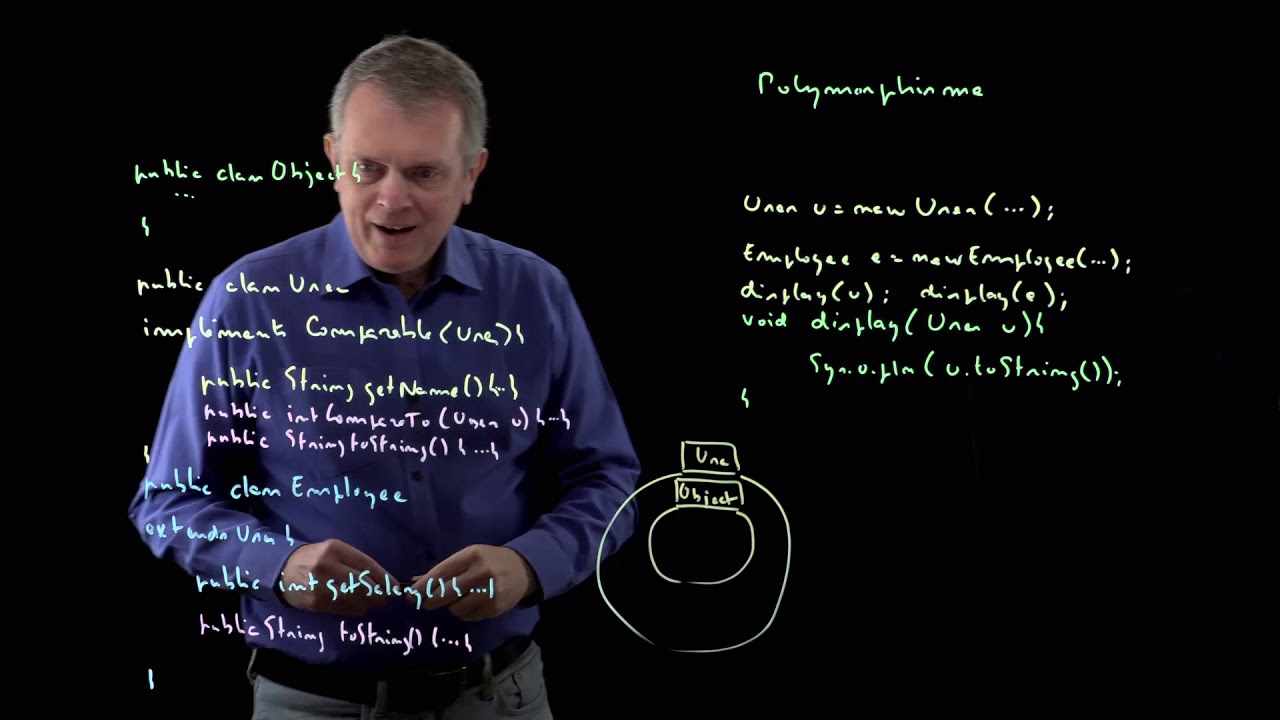 Polymorphisme
public class Object {
...
}
public class User
implements Comparable(User) {
public String getName() {...}
public int CompareTo(User u) {...}
public String toString() {...}
}
public class Employee
extends User {
public int getSalary() {...}
public String toString() {...}
}
User u = new User(...);
Employee e = new Employee(...);
display(u); display(e);
void display(User u) {
Sys.o.pln(u.toString());
}
User
Object